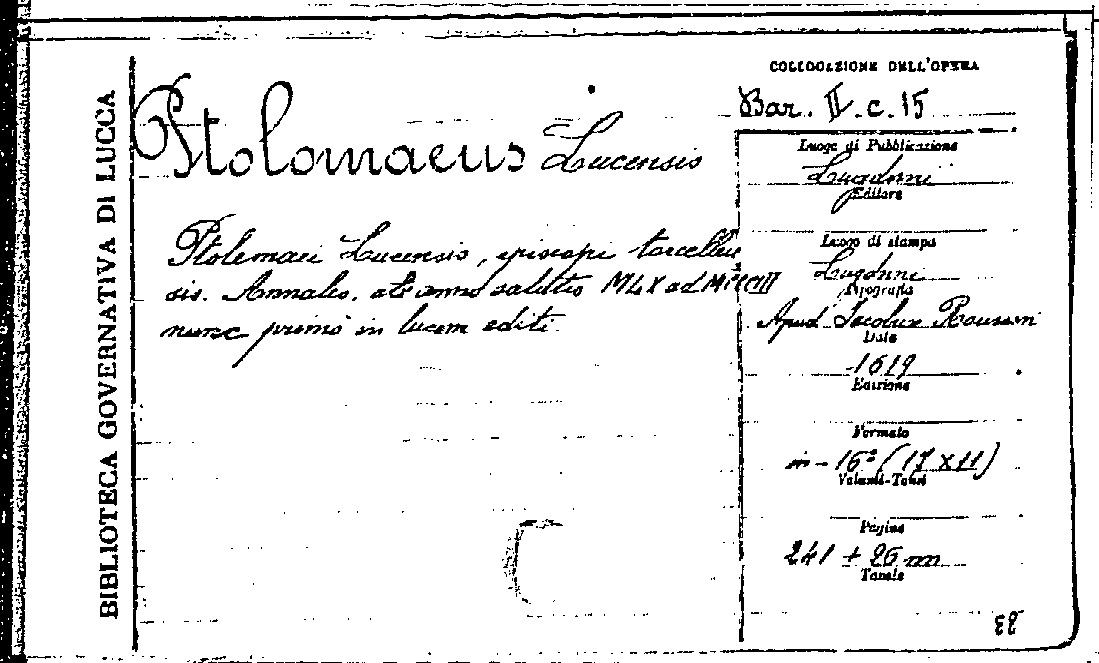 BIBLIOTECA GOVERNATIVA DI LUCCA
Ptolomaeus Lucensis
Ptolemaei Lucensis, episcopi torcellen
sis. Annales. ab anno salutis MLX ad MCCCIII
nunc primo in lucem editi
COLLOCAZIONE DELL'OPERA
Bar. II. c. 15
Luogo di Pubblicazione
Lugduni
Editore
Luogo di stampa
Lugduni
Tipografia
Apud Jacobum Roussin
Data
1619
Edizione
Formato
in-16° (17 x 11)
Volumi-Tomi
Pagine
241 + 26 nn
Tavole